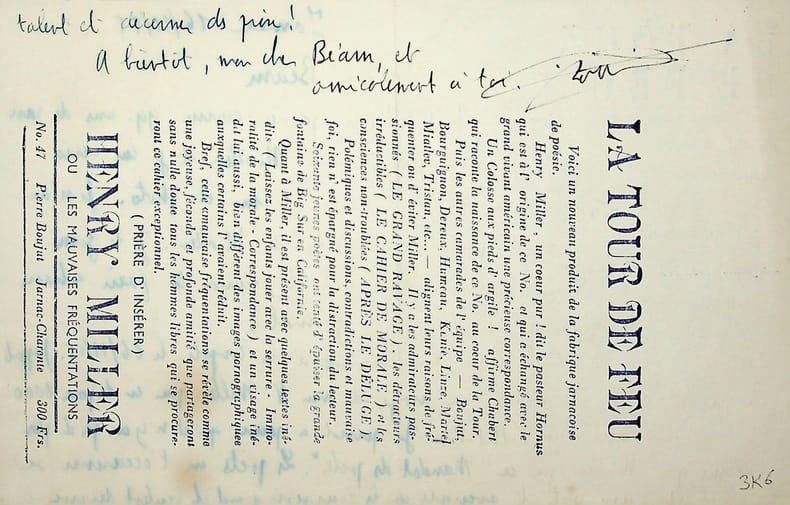 talent et décerner ds prix !
A bientôt, mon cher Béarn, et
amicalement à toi.
LA TOUR DE FEU
Voici un nouveau produit de la fabrique jarnacoise
de poésie.
Henry Miller, un coeur pur ! dit le pasteur Hornus
qui est à l' origine de ce No. et qui a échangé avec le
grand vivant américain une précieuse correspondance.
Un Colosse aux pieds d' argile ! affirme Chabert
qui raconte la naissance de ce No. au coeur de la Tour.
Puis les autres camarades de l' équipe — Boujut,
Bourguignon, Dereux, Humeau, Kanie, Linze, Martel
Miatlev, Tristan, etc... — alignent leurs raisons de fré-
quenter ou d' éviter Miller. Il y a les admirateurs pas-
sionnés ( LE GRAND RAVAGE ), les détracteurs
irréductibles ( LE CAHIER DE MORALE ) et les
consciences non-troublées ( APRÈS LE DÉLUGE ).
Polémiques et discussions, contradictions et mauvaise
foi, rien n' est épargné pour la distraction du lecteur.
Soixante jeunes poètes ont tenté d' épuiser la grande
fontaine de Big Sur en Californie.
Quant à Miller, il est présent avec quelques textes iné-
dits ( Laissez les enfants jouer avec la serrure - Immo-
ralité de la morale - Correspondance ) et un visage iné-
dit lui aussi, bien différent des images pornographiques
auxquelles certains l' avaient réduit.
Bref, cette «mauvaise fréquentation» se révèle comme
une joyeuse, féconde et profonde amitié que partageront
sans nulle doute tous les hommes libres qui se procure-
ront ce cahier exceptionnel.
( PRIÈRE D' INSÉRER )
HENRY MILLER
OU LES MAUVAISES FRÉQUENTATIONS
No. 47 Pierre Boujut Jarnac-Charente 300 Frs.
3K6